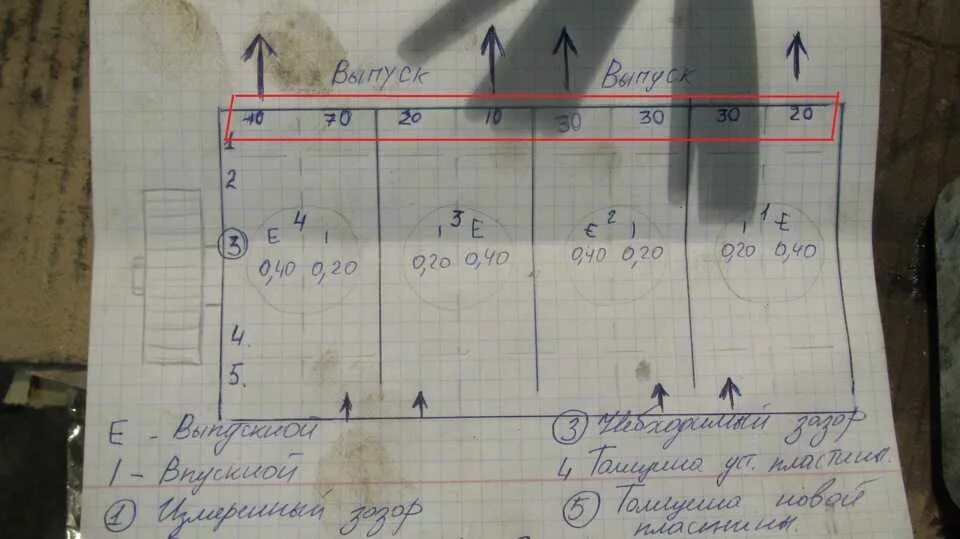 Выпуск Выпуск
10 70 20 10 30 30 30 20
1
2
4 3 2 1
E I I E E I I E
3 0,40 0,20 0,20 0,40 0,40 0,20 0,20 0,40
4.
5.
E - Выпускной
I - Впускной
1 Измеренный зазор
3 Необходимый зазор
4 Толщина уст. пластины.
5 Толщина новой
пластины.